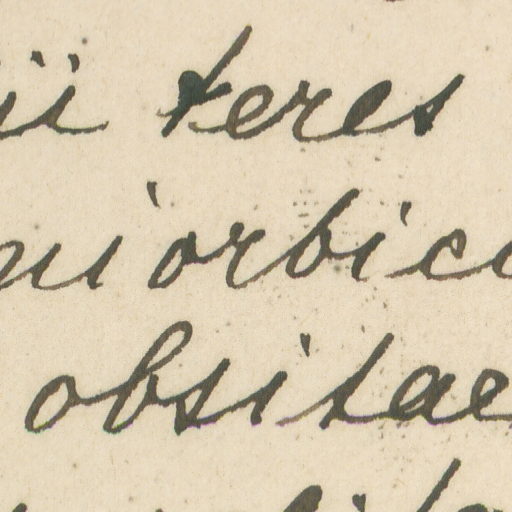 ii teres
niorbicu
obsitae